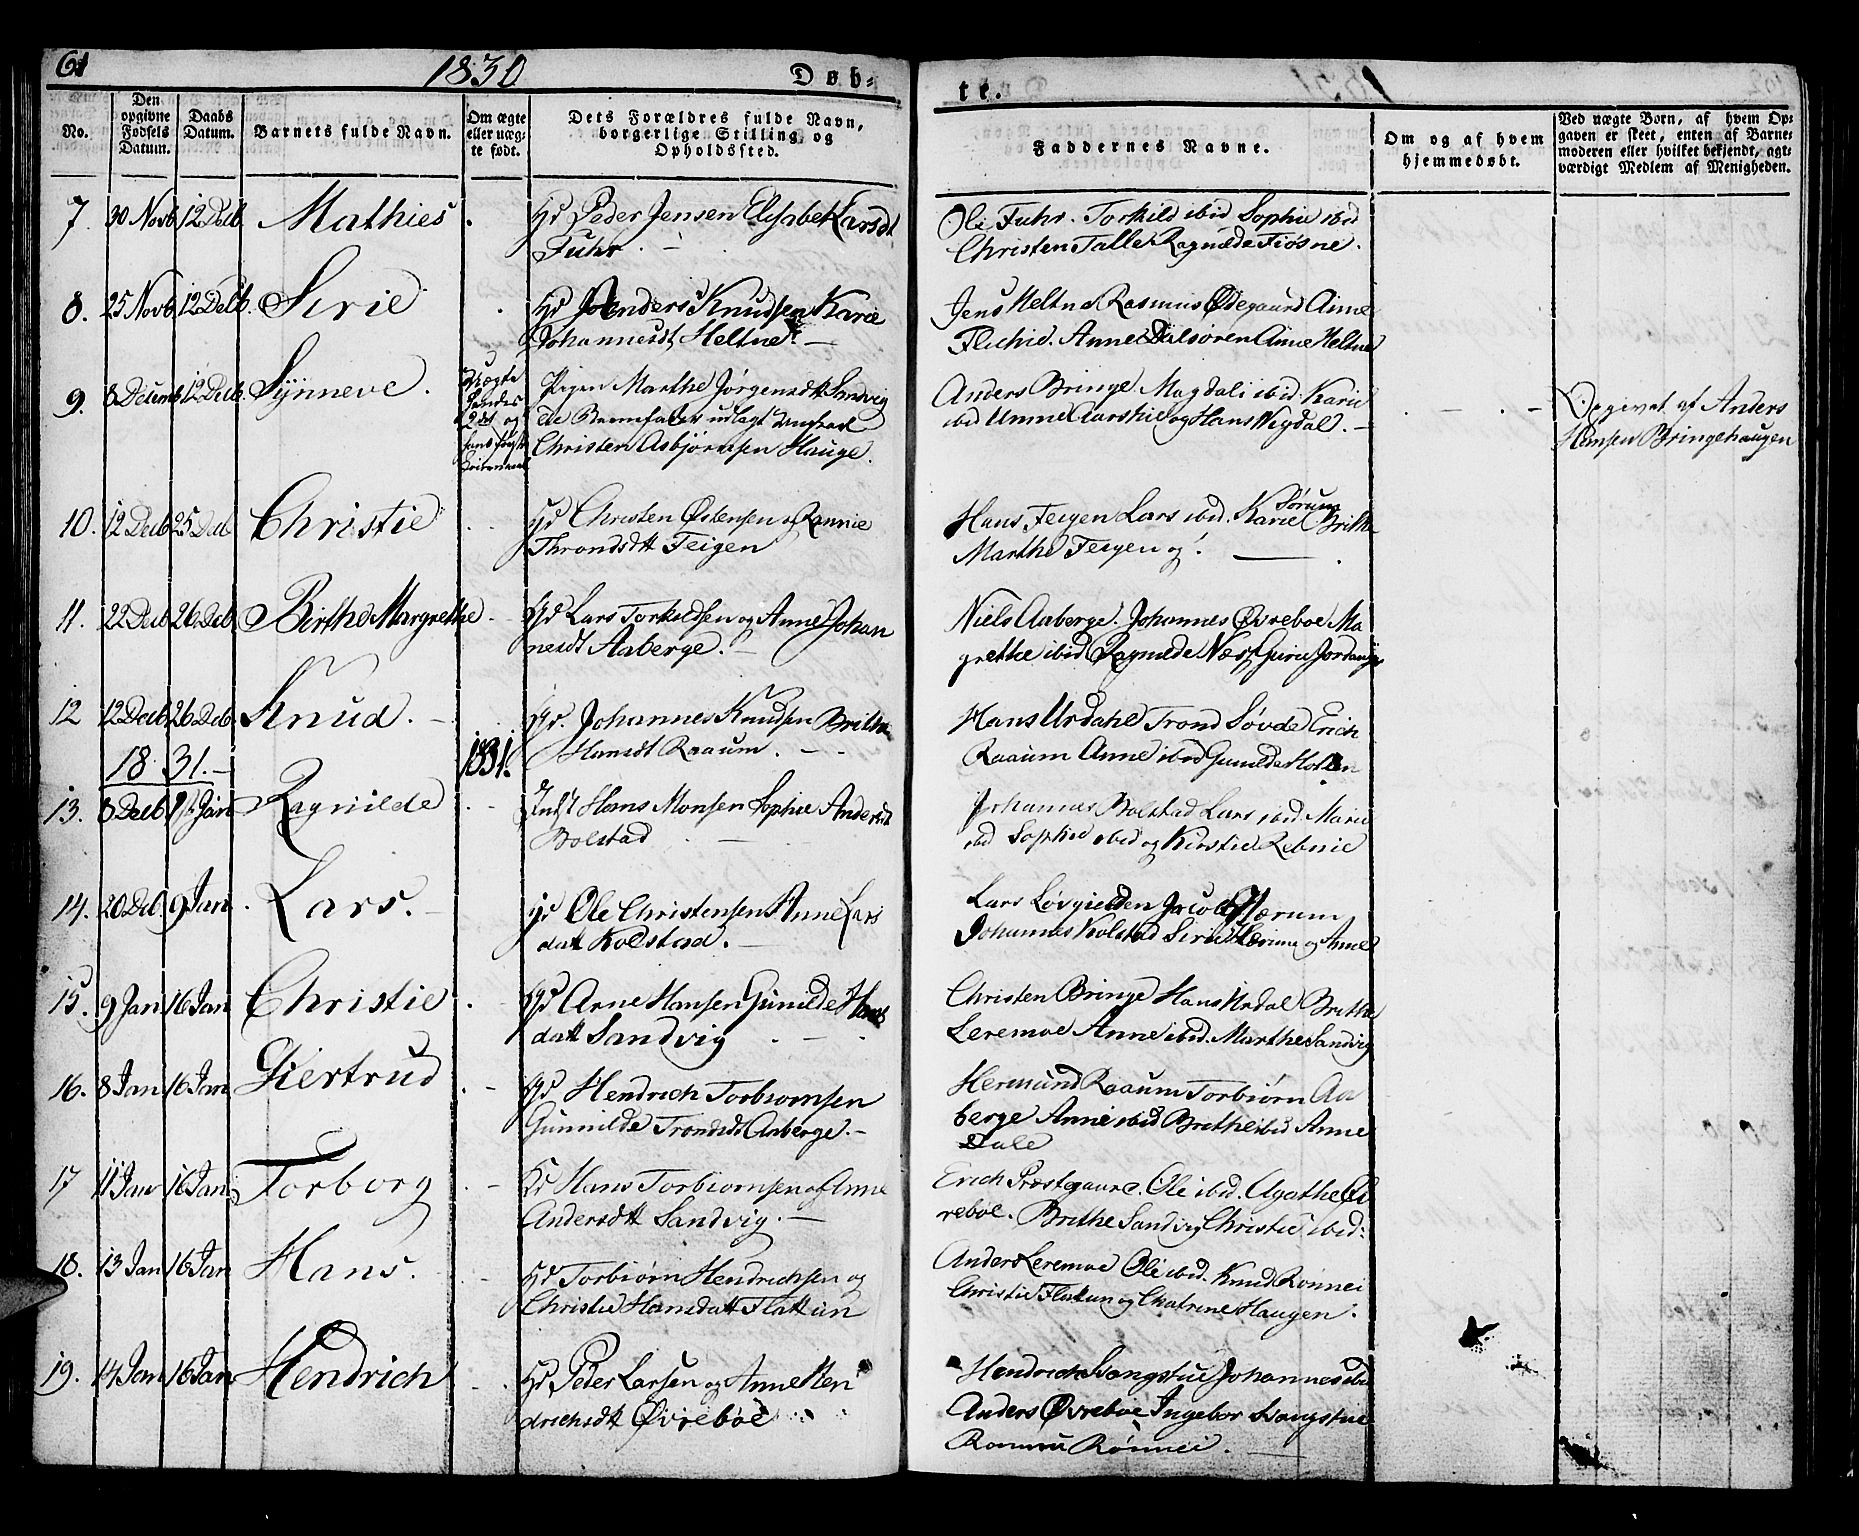 61
1830
Døb-
te.
No.
Den opgivne Fødsels Datum.
Daabs Datum.
Barnets fulde Navn.
Om ægte eller uægte født.
Dets Forældres fulde Navn, borgerlige Stilling og Opholdssted.
Faddernes Navne.
Om og af hvem hjemmedøbt.
Ved uægte Børn, af hvem Opgaven er skeet, enten af Barnemoderen eller hvilket bekjendt, agtværdigt Medlem af Menigheden.
7. 30 Novb 12 Decb. Mathies Gd Peder Jensen Elisabet Larsdt
Fuhr.
Ole Fuhr. Torkild ibid Sophie ibid
Christen Talle Ragnilde Fiøsne.
8. 25 Novb 12 Decb. Sirie Gd Anders Knudsen Karie
Johannesdt Heltne.
Jens Heltne Rasmus Ødegaard Anne
Anne Dalsøren Anne Heltne
9. 8 Decemb 12 Decb. Synneve. Uægte
Pigen Marthe Jørgensdtt Sandvig
Barnefader udlagt
Christen Asbjørnsen Hauge.
Anders Bringe Magdeli ibid Karie
ibid og Hans Vigdal.
Opgivet af Anders
Hansen Bringehaugen
10. 12 Decb 25 Decb Christie Gd Christen Østensen og Rannie
Throndsdtt Feigen
Hans Feigen Lars ibid. Karie Sørum Brithe
Marthe Feigen og
11. 22 Decb 26 Decb. Birthe Margrethe Gd Lars Torkildsen og Anne Johan
nesdt Aaberge.
Niels Aaberge. Johannes Øvreboe Ma
grethe ibid Ragnilde Næss Guri
12 12 Decb 26 Decb. Knud. Gd. Johannes Knudsen Brithe
Hansdt Raaum.
Hans Urdahl Trond Søvde Erich
Raaum Anne ibid Gunilde
1831. 1831.
13. 8 Decb 1st Jan Ragnilde Inst Hans Monsen Sophie Andersdt
Bolstad
Johannes Bolstad Lars ibid Marie
ibid Sophie ibid og Kirstie Rebnie
14. 20 Deb. 9 Jan. Lars. Gd Ole Christensen Anne Lars
datt Kolstad.
Lars Jacob
Johannes Kolstad Siri og Anne
15. 9 Jan 16 Jan Christie Gd Arne Hansen Gunilde Hans
datt Sandvig
Christen Bringe Hans Urdal Brithe
Leremoe Anne ibid. Marthe Sandvig
16. 8 Jan 16 Jan Giertrud Gd Hendrich Torbiornsen
Gunnilde Trondsdt Aaberge.
Hermund Raaum Torbiørn Aa
berge Anne ibid Brithe ibid Anne
Dale
17 11 Jan 16 Jan Torborg Gd Hans Torbiornsen og Anne
Andersdtt Sandvig.
Erich Præstegaard. Ole ibid. Agathe Øv
reboe. Brithe Sandvig Christie ibid.
18. 13 Jan 16 Jan Hans. Gd Torbiørn Hendrichsen og
Christie Hansdatt Flattun
Anders Leremoe Ole ibid. Knud Rønnei
Christie Flattun og Chatrine Haugen.
19. 14 Jan 16 Jan Hendrich Gd Peder Larsen og Anne Hen
drichsdtt Øvreboe
Hendrich Johannes ibid
Anders Øvreboe Ingebor
Rønnei.